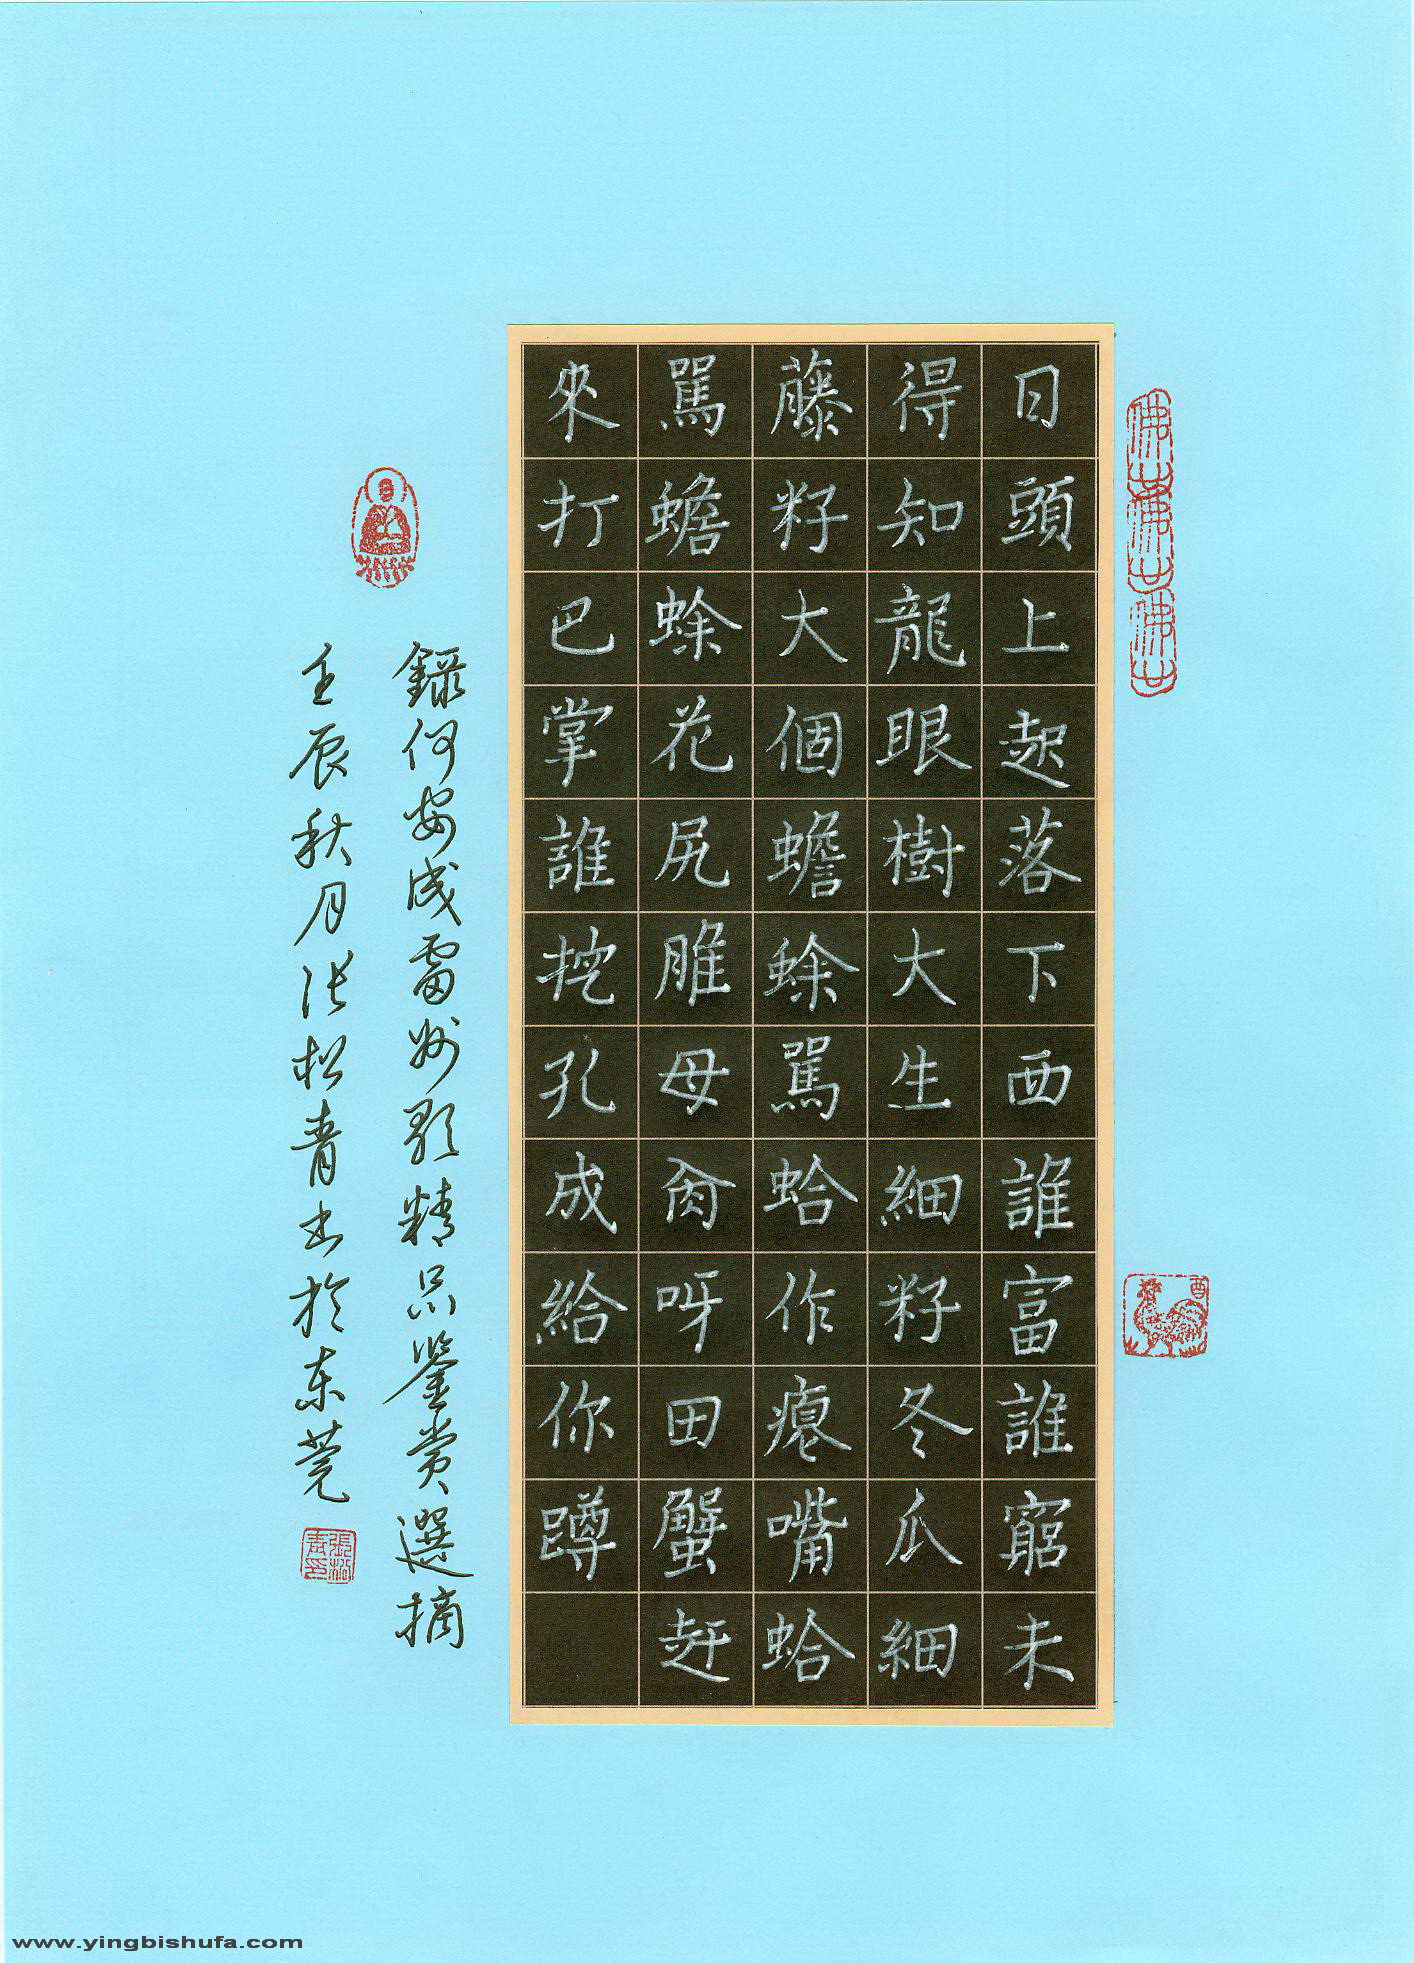 日頭上起落下西誰富誰窮未
得知龍眼樹大生細籽冬瓜細
藤籽大個蟾蜍罵蛤作瘪嘴蛤
罵蟾蜍花尻脽母肏呀田蟹赶
來打巴掌誰挖孔成給你蹲
錄何安成雷州歌精品鉴赏選摘
壬辰秋月张松青书於东莞
www.yingbishufa.com